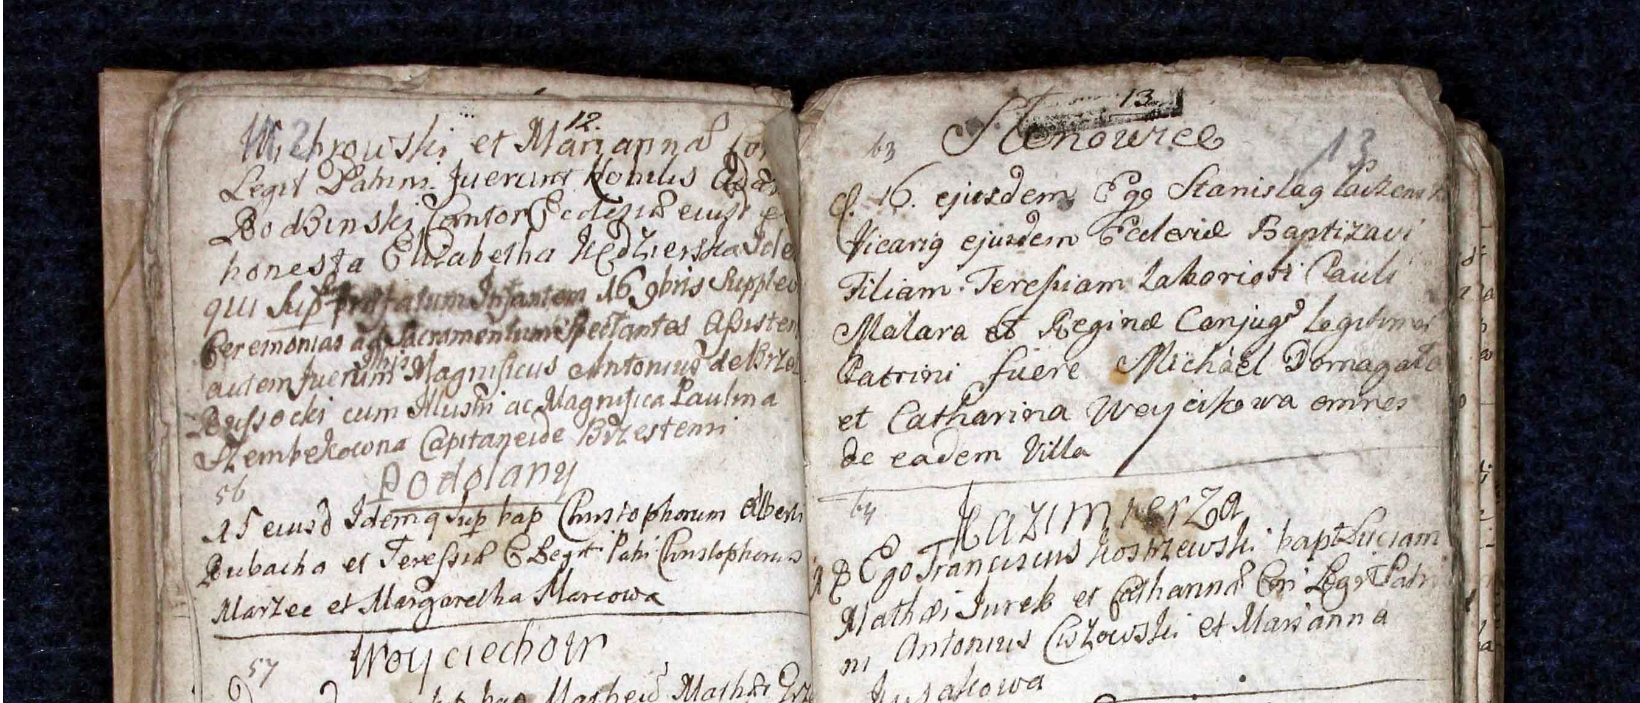 12.
Michrowski et Marianna Con
Legit Patrini fuerunt Honilis Adam
Bodzinski Cantor Ecclesiæ eiusd et
honesta Elizabetha Kędzierska Idem
qui sup præfatum Infantem 16 9bris Supplevi
Ceremonias ad Sacramentum Spectantes Assisten
autem fuerunt Magnificus Antonius de Brze
cum Illustri ac Magnifica Paulina
Szembekowna Capitaneide Brzesteni
56
Podolany
15 eiusd Idem q sup bap Christophorum Alberti
Dubacha et Teressiæ C Legit Patri Christophorus
Marzec et Margaretha Marcowa
57
Woyciechow
bap Matheū Mathæi
13
13
63
D. 16. ejusdem Ego Stanislaq
Vicariq ejusdem Ecclesiæ Baptizavi
Filiam Teressiam Laboriosi Pauli
Malara et Reginæ Conjugū Legitimor
Patrini fuere Michael Domagała
et Catharina Woycikowa omnes
de eadem Villa
64
Kazimierza
D Ego Franciscus Kostrzewski bapt Luciam
Mathæi Jurek et Catharinæ Con Legit Patri
ni Antonius Ciszowski et Marianna